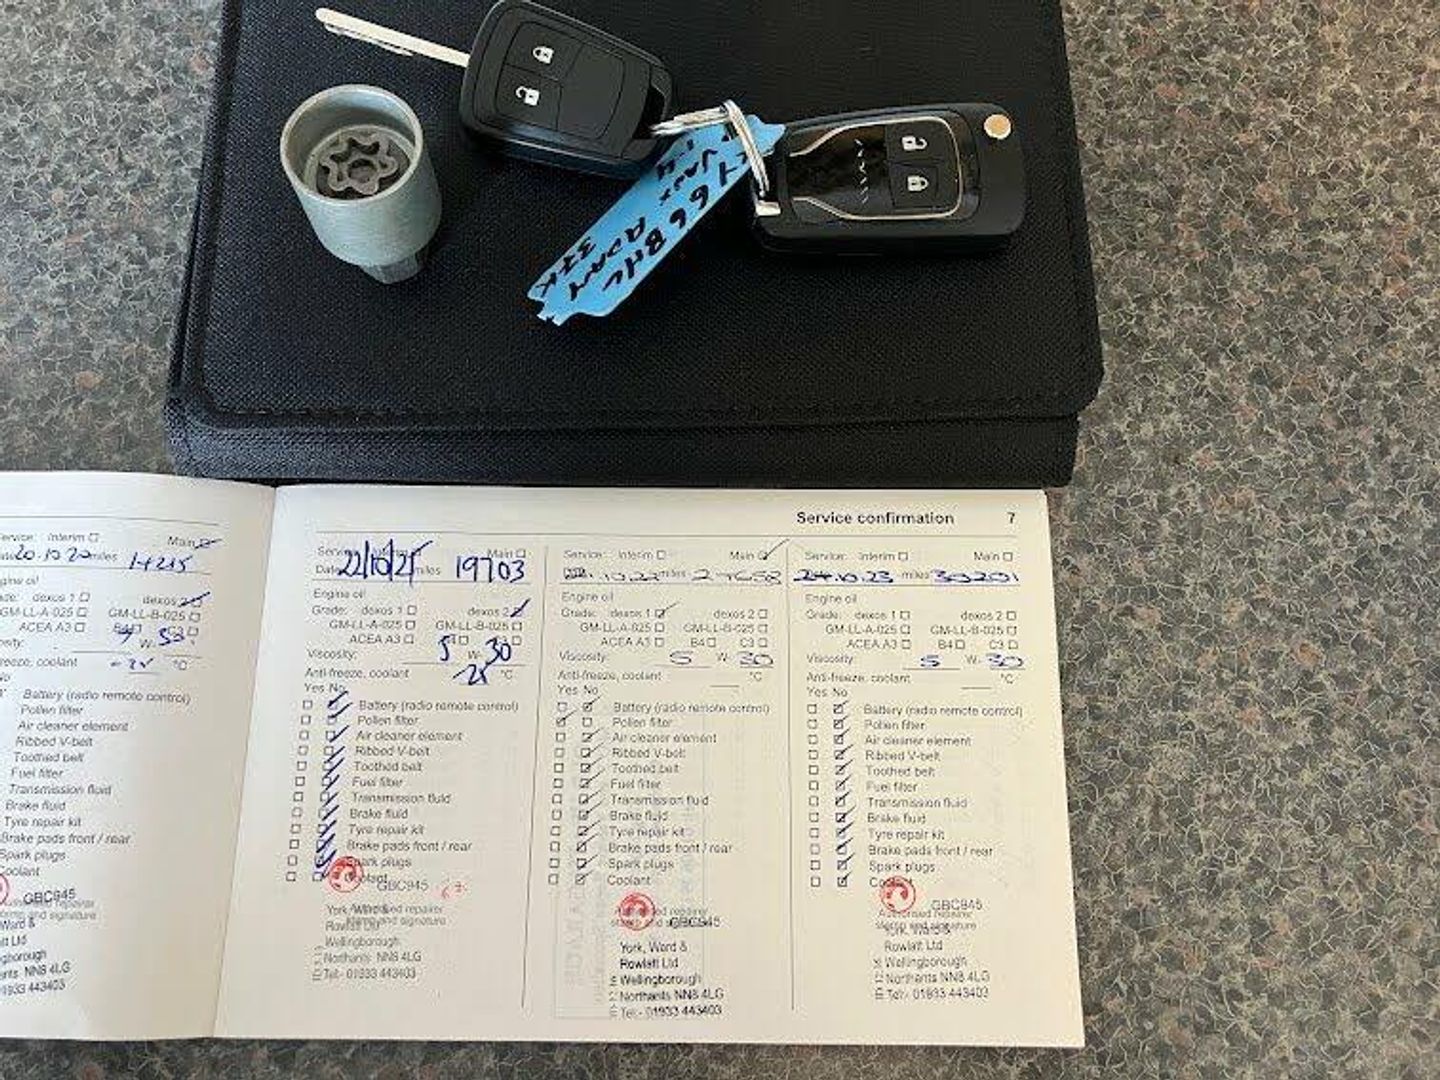 Y66 BHL
VAUX ADAM
1.4 37K
Service confirmation 7
Service: Interim Main
20.10.20 miles 14215
Engine oil
Grade: dexos 1 dexos 2
GM-LL-A-025 GM-LL-B-025
ACEA A3
Viscosity: W-
Anti-freeze, coolant °C
No
Battery (radio remote control)
Pollen filter
Air cleaner element
Ribbed V-belt
Toothed belt
Fuel filter
Transmission fluid
Brake fluid
Tyre repair kit
Brake pads front / rear
Spark plugs
Coolant
GBC945
Authorised repairer
stamp and signature
Ward &
Rowlatt Ltd
Wellingborough
Northants NN8 4LG
01933 443403
Service: Interim Main
Date 22/10/21 miles 19703
Engine oil
Grade: dexos 1 dexos 2
GM-LL-A-025 GM-LL-B-025
ACEA A3 B4 C3
Viscosity: 5 W- 30
Anti-freeze, coolant -25 °C
Yes No
Battery (radio remote control)
Pollen filter
Air cleaner element
Ribbed V-belt
Toothed belt
Fuel filter
Transmission fluid
Brake fluid
Tyre repair kit
Brake pads front / rear
Spark plugs
Coolant
GBC945
Authorised repairer
stamp and signature
York, Ward &
Rowlatt Ltd
Wellingborough
Northants NN8 4LG
Tel:- 01933 443403
Service: Interim Main
.10.22 miles 24658
Engine oil
Grade: dexos 1 dexos 2
GM-LL-A-025 GM-LL-B-025
ACEA A3 B4 C3
Viscosity: 5 W- 30
Anti-freeze, coolant °C
Yes No
Battery (radio remote control)
Pollen filter
Air cleaner element
Ribbed V-belt
Toothed belt
Fuel filter
Transmission fluid
Brake fluid
Tyre repair kit
Brake pads front / rear
Spark plugs
Coolant
GBC945
Authorised repairer
stamp and signature
York, Ward &
Rowlatt Ltd
Wellingborough
Northants NN8 4LG
Tel:- 01933 443403
Service: Interim Main
24.10.23 miles 30201
Engine oil
Grade: dexos 1 dexos 2
GM-LL-A-025 GM-LL-B-025
ACEA A3 B4 C3
Viscosity: 5 W- 30
Anti-freeze, coolant °C
Yes No
Battery (radio remote control)
Pollen filter
Air cleaner element
Ribbed V-belt
Toothed belt
Fuel filter
Transmission fluid
Brake fluid
Tyre repair kit
Brake pads front / rear
Spark plugs
Coolant
GBC945
Authorised repairer
stamp and signature
York, Ward &
Rowlatt Ltd
Wellingborough
Northants NN8 4LG
Tel:- 01933 443403